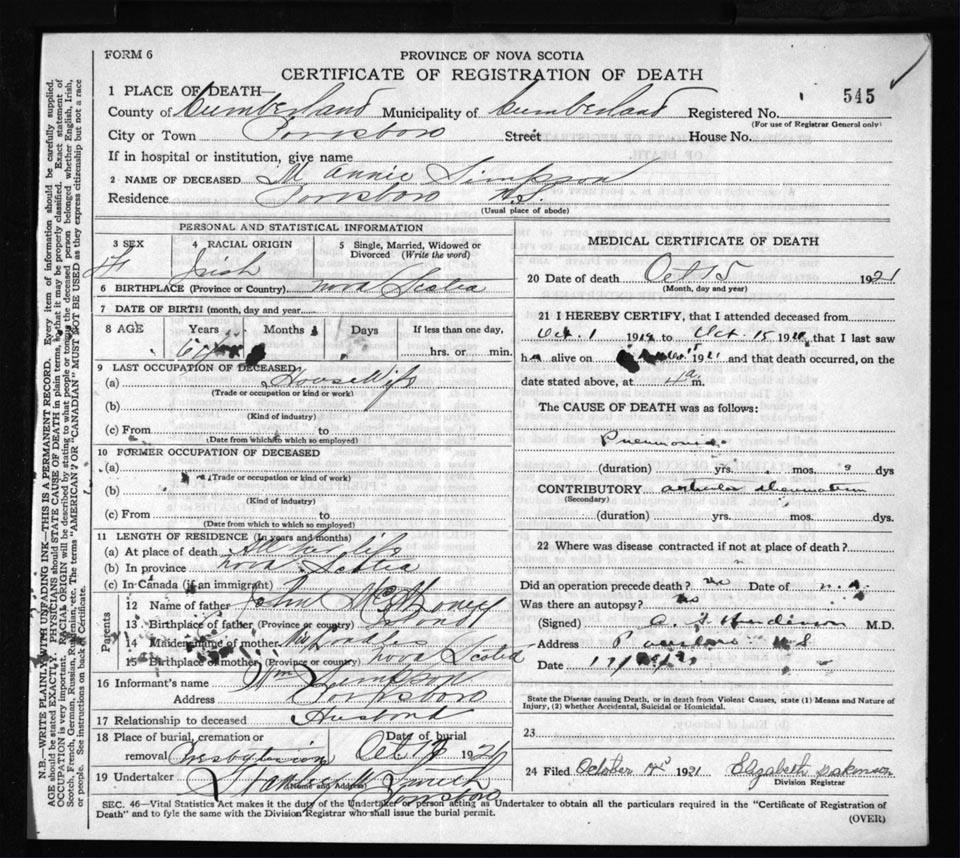 FORM 6
PROVINCE OF NOVA SCOTIA
CERTIFICATE OF REGISTRATION OF DEATH
545
1 PLACE OF DEATH—
County of Cumberland Municipality of Cumberland Registered No.
(For use of Registrar General only)
City or Town Parrsboro Street House No.
If in hospital or institution, give name
2 NAME OF DECEASED M Annie Simpson
Residence Parrsboro N.S.
(Usual place of abode)
PERSONAL AND STATISTICAL INFORMATION
3 SEX 4 RACIAL ORIGIN 5 Single, Married, Widowed or Divorced (Write the word)
F Irish
6 BIRTHPLACE (Province or Country) Nova Scotia
7 DATE OF BIRTH (month, day and year)
8 AGE Years Months Days If less than one day,
hrs. or min.
9 LAST OCCUPATION OF DECEASED
(a) Housewife
(Trade or occupation or kind or work)
(b)
(Kind of industry)
(c) From to
(Date from which to which so employed)
10 FORMER OCCUPATION OF DECEASED
(a)
(Trade or occupation or kind of work)
(b)
(Kind of industry)
(c) From to
(Date from which to which so employed)
11 LENGTH OF RESIDENCE (In years and months)
(a) At place of death All her life
(b) In province Nova Scotia
(c) In Canada (if an immigrant)
Parents
12 Name of father John
13 Birthplace of father (Province or country)
14 Maiden name of mother
15 Birthplace of mother (Province or country) Nova Scotia
16 Informant's name Wm Simpson
Address Parrsboro
17 Relationship to deceased Husband
18 Place of burial, cremation or removal Presbyterian
Date of burial Oct 192
19 Undertaker Stanley Smith
(Name and Address) Parrsboro
MEDICAL CERTIFICATE OF DEATH
20 Date of death Oct 15 1921
(Month, day and year)
21 I HEREBY CERTIFY, that I attended deceased from
Oct. 1 19 to Oct. 15 19 that I last saw
h alive on 1921 and that death occurred, on the
date stated above, at 4 a m.
The CAUSE OF DEATH was as follows:
Pneumonia
(duration) yrs. mos. 9 dys
CONTRIBUTORY articular rheumatism
(Secondary)
(duration) yrs. mos. dys.
22 Where was disease contracted if not at place of death?
Did an operation precede death? no Date of
Was there an autopsy? no
(Signed) M.D.
Address Parrsboro N S
Date
State the Disease causing Death, or in death from Violent Causes, state (1) Means and Nature of Injury, (2) whether Accidental, Suicidal or Homicidal.
23
24 Filed October 1921 Elizabeth
Division Registrar
SEC. 46—Vital Statistics Act makes it the duty of the Undertaker or person acting as Undertaker to obtain all the particulars required in the "Certificate of Registration of
Death" and to fyle the same with the Division Registrar who shall issue the burial permit.
(OVER)
N.B.—WRITE PLAINLY WITH UNFADING INK—THIS IS A PERMANENT RECORD. Every item of information should be carefully supplied.
AGE should be stated EXACTLY. PHYSICIANS should STATE CAUSE OF DEATH in plain terms, that it may be properly classified. Exact statement of
OCCUPATION is very important. RACIAL ORIGIN will be described by stating to what people or tongue the deceased person belonged whether English, Irish,
Scotch, French, German, Russian, Ruthenian, etc. The terms "AMERICAN" or "CANADIAN" MUST NOT BE USED as they express citizenship but not a race
or people. See instructions on back of Certificate.